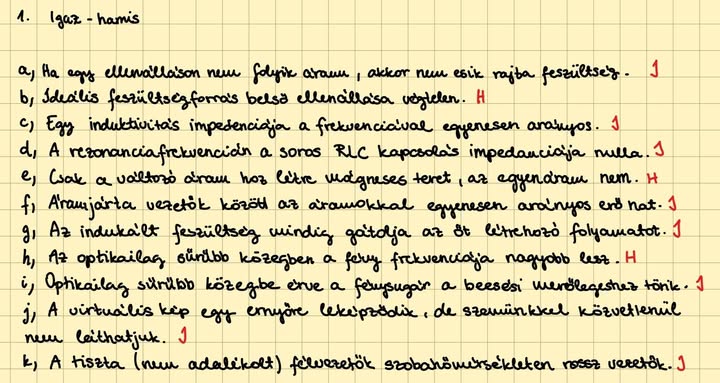 1. Igaz - hamis
a, Ha egy ellenálláson nem folyik áram, akkor nem esik rajta feszültség. I
b, Ideális feszültségforrás belső ellenállása végtelen. H
c, Egy induktivitás impedanciája a frekvenciával egyenesen arányos. I
d, A rezonanciafrekvencián a soros RLC kapcsolás impedanciája nulla. I
e, Csak a változó áram hoz létre mágneses teret, az egyenáram nem. H
f, Áramjárta vezetők között az áramokkal egyenesen arányos erő hat. I
g, Az indukált feszültség mindig gátolja az őt létrehozó folyamatot. I
h, Az optikailag sűrűbb közegben a fény frekvenciája nagyobb lesz. H
i, Optikailag sűrűbb közegbe érve a fénysugár a beesési merőlegeshez törik. I
j, A virtuális kép egy ernyőre leképződik, de szemünkkel közvetlenül
nem láthatjuk. I
k, A tiszta (nem adalékolt) félvezetők szobahőmérsékleten rossz vezetők. I